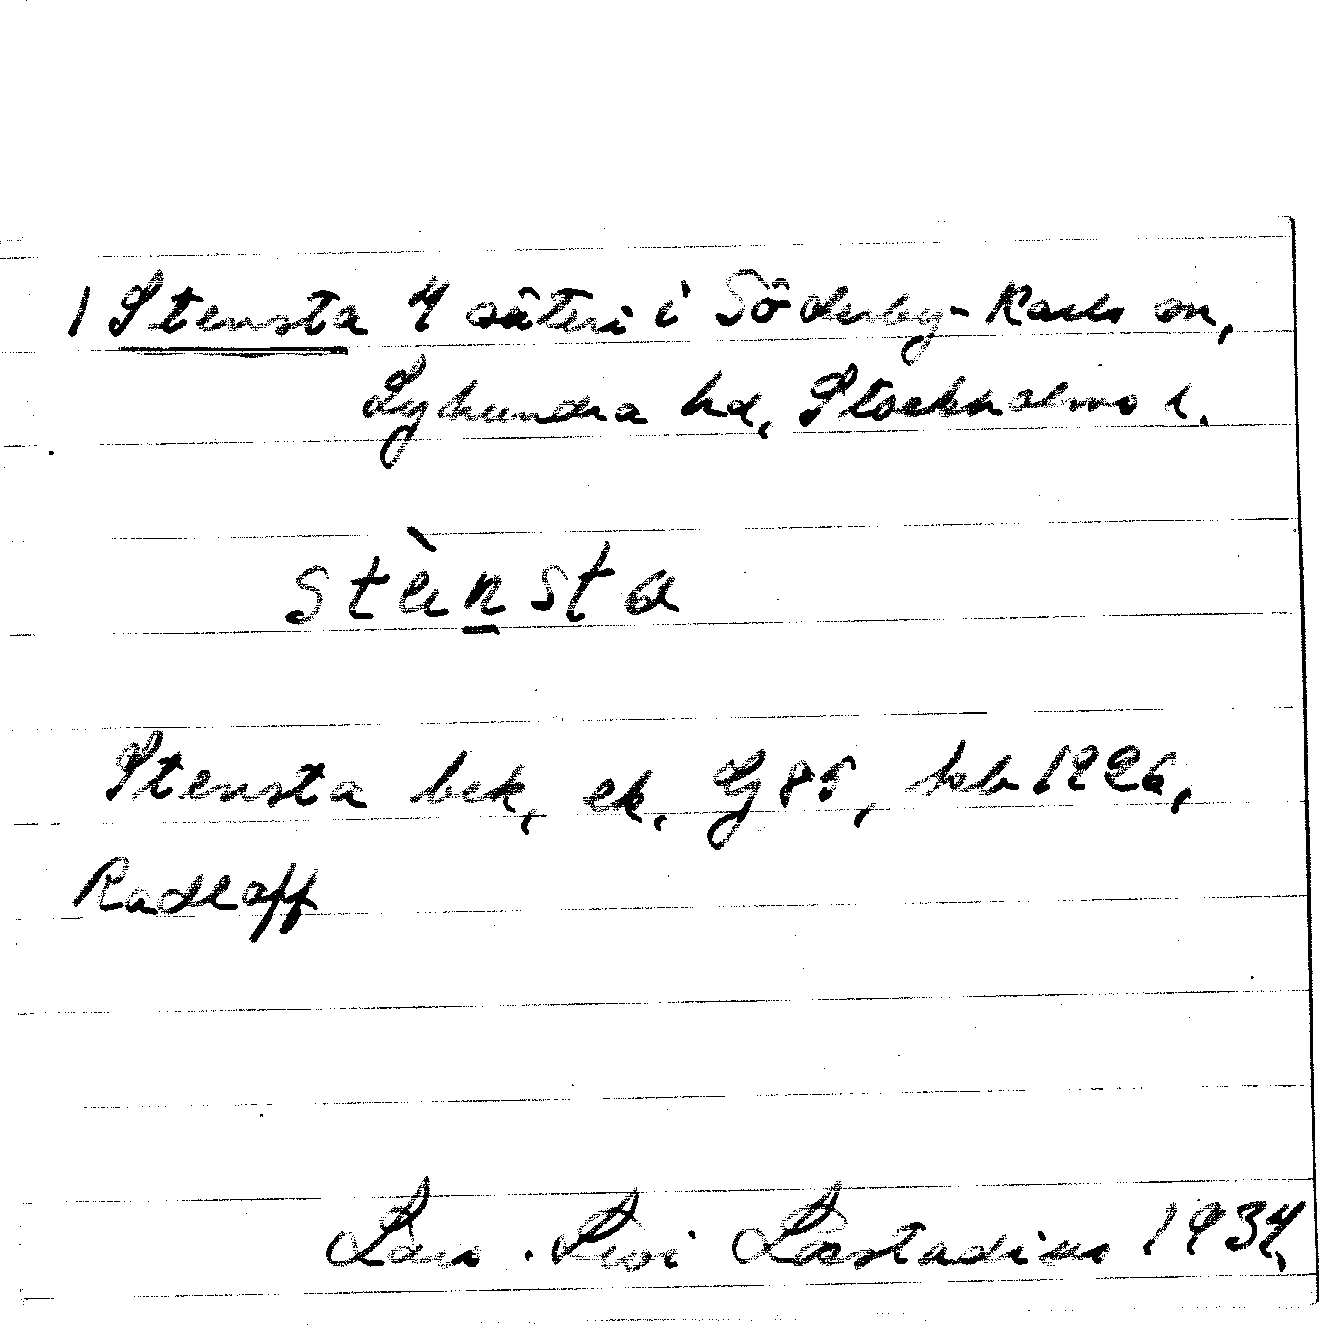 1 Stensta 4 säteri i Söderby-Karls sn,
Lyhundra hd, Stockholms l.
stènsta
Stensta bek, ek. Gj 85, hsb 1226,
Radloff
Lars. Levi Læstadius 1934